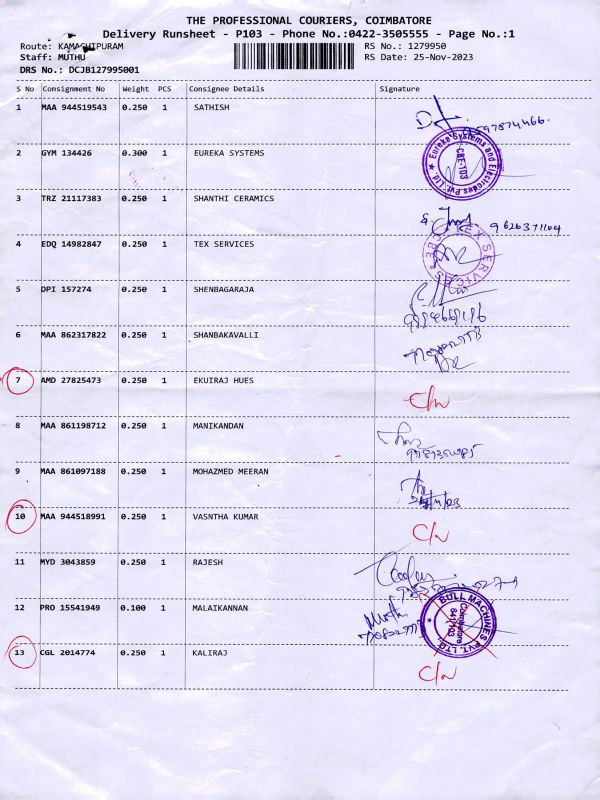 THE PROFESSIONAL COURIERS, COIMBATORE
Delivery Runsheet - P103 - Phone No.:0422-3505555 - Page No.:1
Route: KAMACHIPURAM RS No.: 1279950
Staff: MUTHU RS Date: 25-Nov-2023
DRS No.: DCJB127995001
S No Consignment No Weight PCS Consignee Details Signature
1 MAA 944519543 0.250 1 SATHISH
2 GYM 134426 0.300 1 EUREKA SYSTEMS
Eureka Systems and Electrodes Pvt. Ltd.
CBE-103
3 TRZ 21117383 0.250 1 SHANTHI CERAMICS
9626371104
4 EDQ 14982847 0.250 1 TEX SERVICES
TEX SERVICES
5 DPI 157274 0.250 1 SHENBAGARAJA
6 MAA 862317822 0.250 1 SHANBAKAVALLI
7 AMD 27825473 0.250 1 EKUIRAJ HUES
8 MAA 861198712 0.250 1 MANIKANDAN
9 MAA 861097188 0.250 1 MOHAZMED MEERAN
10 MAA 944518991 0.250 1 VASNTHA KUMAR
11 MYD 3043859 0.250 1 RAJESH
12 PRO 15541949 0.100 1 MALAIKANNAN
BULL MACHINES PVT. LTD.
Coimbatore
641 103
13 CGL 2014774 0.250 1 KALIRAJ